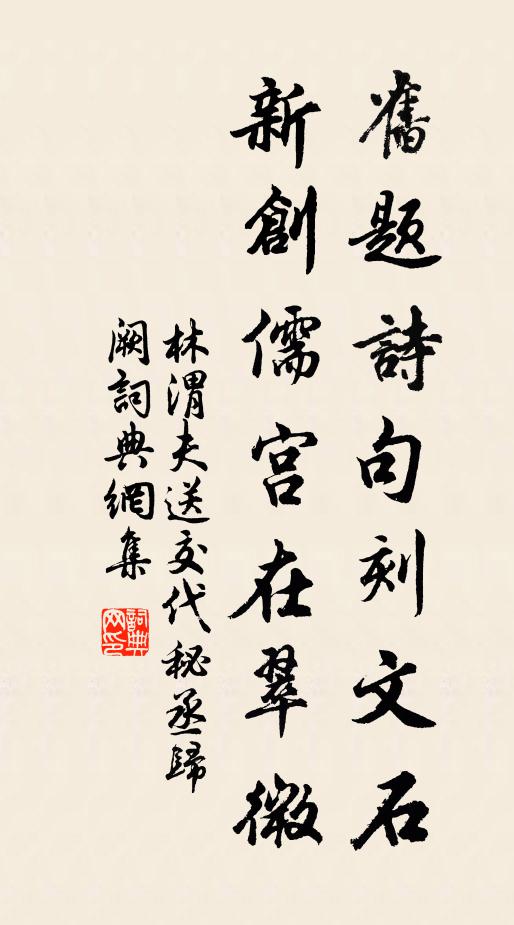 舊題詩句刻文石
新創儒宮在翠微
林渭夫送交代秘丞歸
闕詞典網集
詞典網印